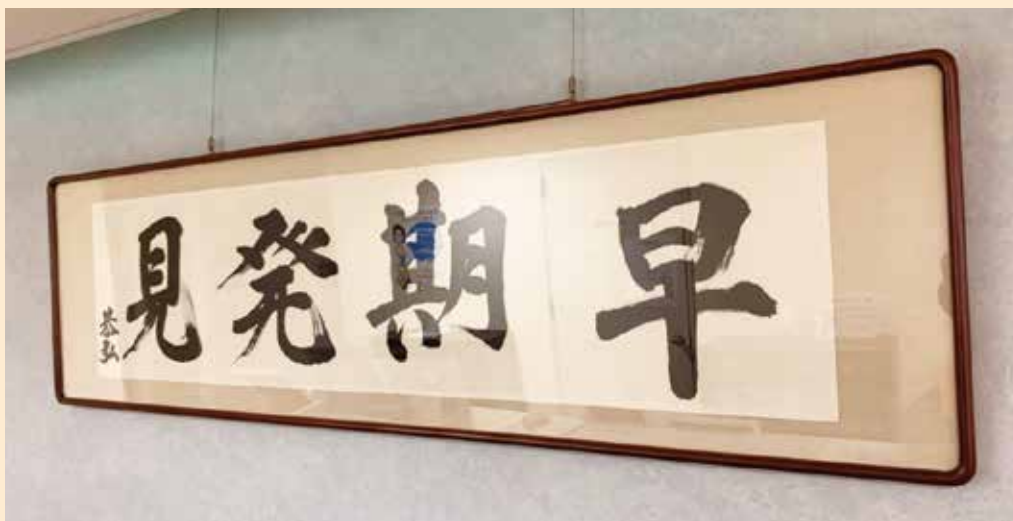 早期発見
恭弘